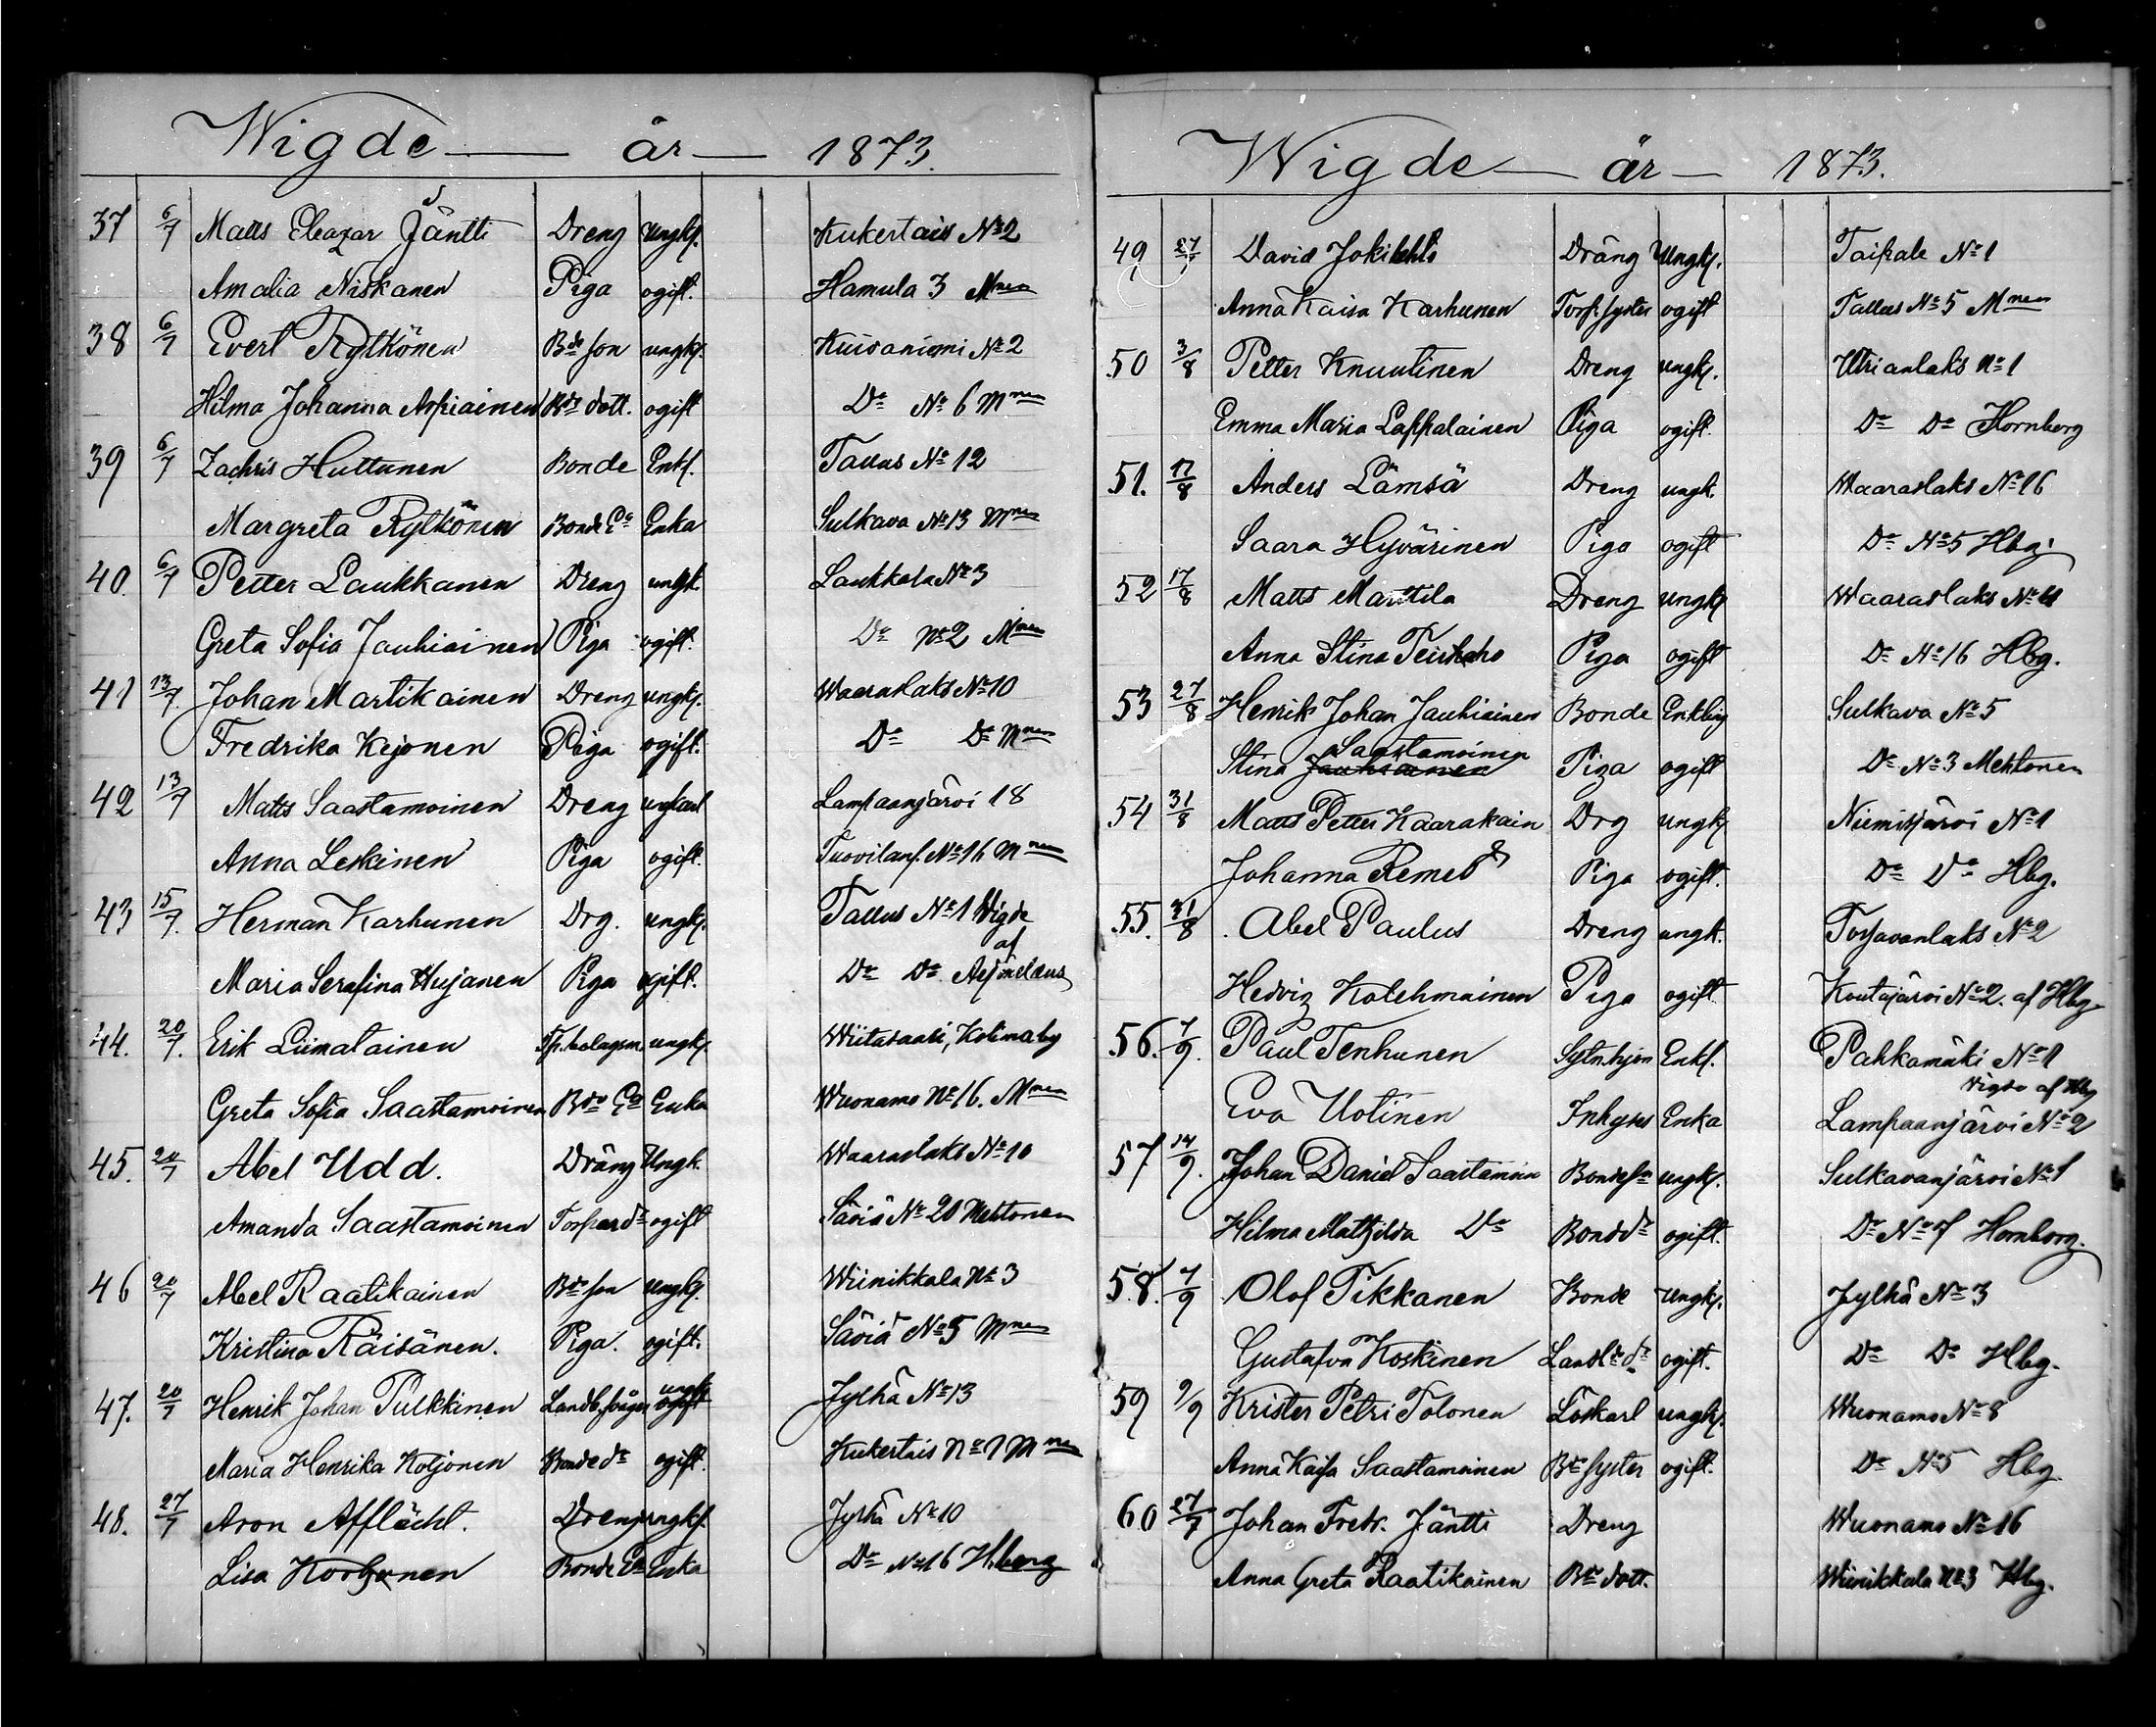 Wigde år 1873.
37 6/7 Matts Eleazar Jäntti Dreng ungk. Kukertais No 2
Amalia Niskanen Piga ogift. Hamula 3 Mnen
38 6/7 Evert Rytkönen Bde son ungk. Kuivaniemi No 2
Hilma Johanna Aspiainen Bde dott. ogift Do No 6 Mnen
39 6/7 Zachris Huttunen Bonde Enkl. Tallus No 12
Margreta Rytkönen Bonde Ea Enka Sulkava No 13 Mnen
40. 6/7 Petter Laukkanen Dreng ungk. Laukkala No 3
Greta Sofia Jauhiainen Piga ogift. Do No 2 Mnen
41 13/7. Johan Martikainen Dreng ungk. Waaraslaks No 10
Fredrika Kejonen Piga ogift. Do Do Mnen
42 13/7 Matts Saastamoinen Dreng Lampaanjärvi 18
Anna Leskinen Piga ogift. Tuovilanl. No 16 Mnen
43 15/7. Herman Karhunen Drg. ungk. Tallus No 1 Wigde
af
Maria Serafina Hujanen Piga ogift. Do Do Aejmelæus
44. 20/7. Erik Liimatainen ungk. Wiitasaari, Kolimaby
Greta Sofia Saastamoinen Bde Ea Enka Wuonamo No 16. Mnen
45. 20/7 Abel Udd. Dräng Ungk. Waaraslaks No 10
Amanda Saastamoinen Torpar dr ogift Säviä No 20 Mehtonen
46 20/7 Abel Raatikainen Bde son ungk. Wiinikkala No 3
Kristina Räisänen. Piga. ogift. Säviä No 5 Mnen
47. 20/7 Henrik Johan Pulkkinen Landb. ungk. Jylhä No 13
Maria Henrika Kotjonen Bonde dr ogift. Kukertais No 1 Mnen
48. 27/7 Aron Afflächt. Dreng ungk. Jylhä No 10
Lisa Korhonen Bonde Ea Enka Do No 16 H.berg
Wigde år 1873.
49 27/7 David Jokilehto Dräng Ungk. Taipale No 1
Anna Kaisa Karhunen Torp. syster ogift Tallus No 5 Mnen
50 3/8 Petter Knuutinen Dreng ungk. Utrianlaks No 1
Emma Maria Lappalainen Piga ogift. Do Do Hornborg
51. 17/8 Anders Lämsä Dreng ungk. Waaraslaks No 16
Saara Hyvärinen Piga ogift Do No 5 Hbg.
52 17/8 Matts Marttila Dreng ungk. Waaraslaks
Anna Stina Piga ogift Do No 16 Hbg.
53 27/8 Henrik Johan Jauhiainen Bonde Enkling Sulkava No 5
Saastamoinen
Stina Jauhiainen Piga ogift Do No 3 Mehtonen
54 31/8 Matts Petter Kaarakain Drg ungk. Niemisjärvi No 1
Johanna Remes Piga ogift. Do Do Hbg.
55. 31/8 Abel Paulus Dreng ungk. No 2
Hedvig Kolehmainen Piga ogift Koutajärvi No 2. af Hbg
56. 7/9. Paul Tenhunen Sytn.hjon Enkl. Pahkamäki No 1
Vigde af Hbg
Eva Uotinen Inhyses Enka Lampaanjärvi No 2
57 14/9. Johan Daniel Saastamoin Bondeson ungk. Sulkavanjärvi No 1
Hilma Mathilda Do Bonde dr ogift. Do No 1 Hornborg.
58. 7/9 Olof Tikkanen Bonde ungk. Jylhä No 3
Gustafva Koskinen Landb. dr ogift. Do Do Hbg.
59 9/9 Krister Petri Tolonen Löskarl ungk. Wuonamo No 8
Anna Kaisa Saastamoinen Bde syster ogift. Do No 5 Hbg.
60 27/7 Johan Fredr. Jäntti Dreng Wuonamo No 16
Anna Greta Raatikainen Bde dott. Wiinikkala No 3 Hbg.